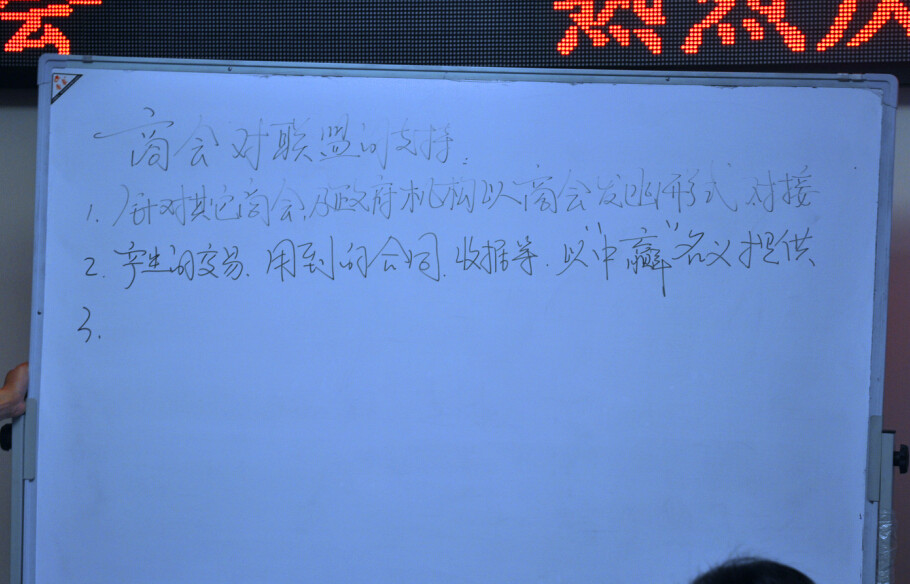 会 热烈庆
商会对联盟的支持:
1. 针对其它商会,及政府机构以商会发出形式对接
2. 产生的交易、用到的合同、收据等、以"中赢"名义提供
3.